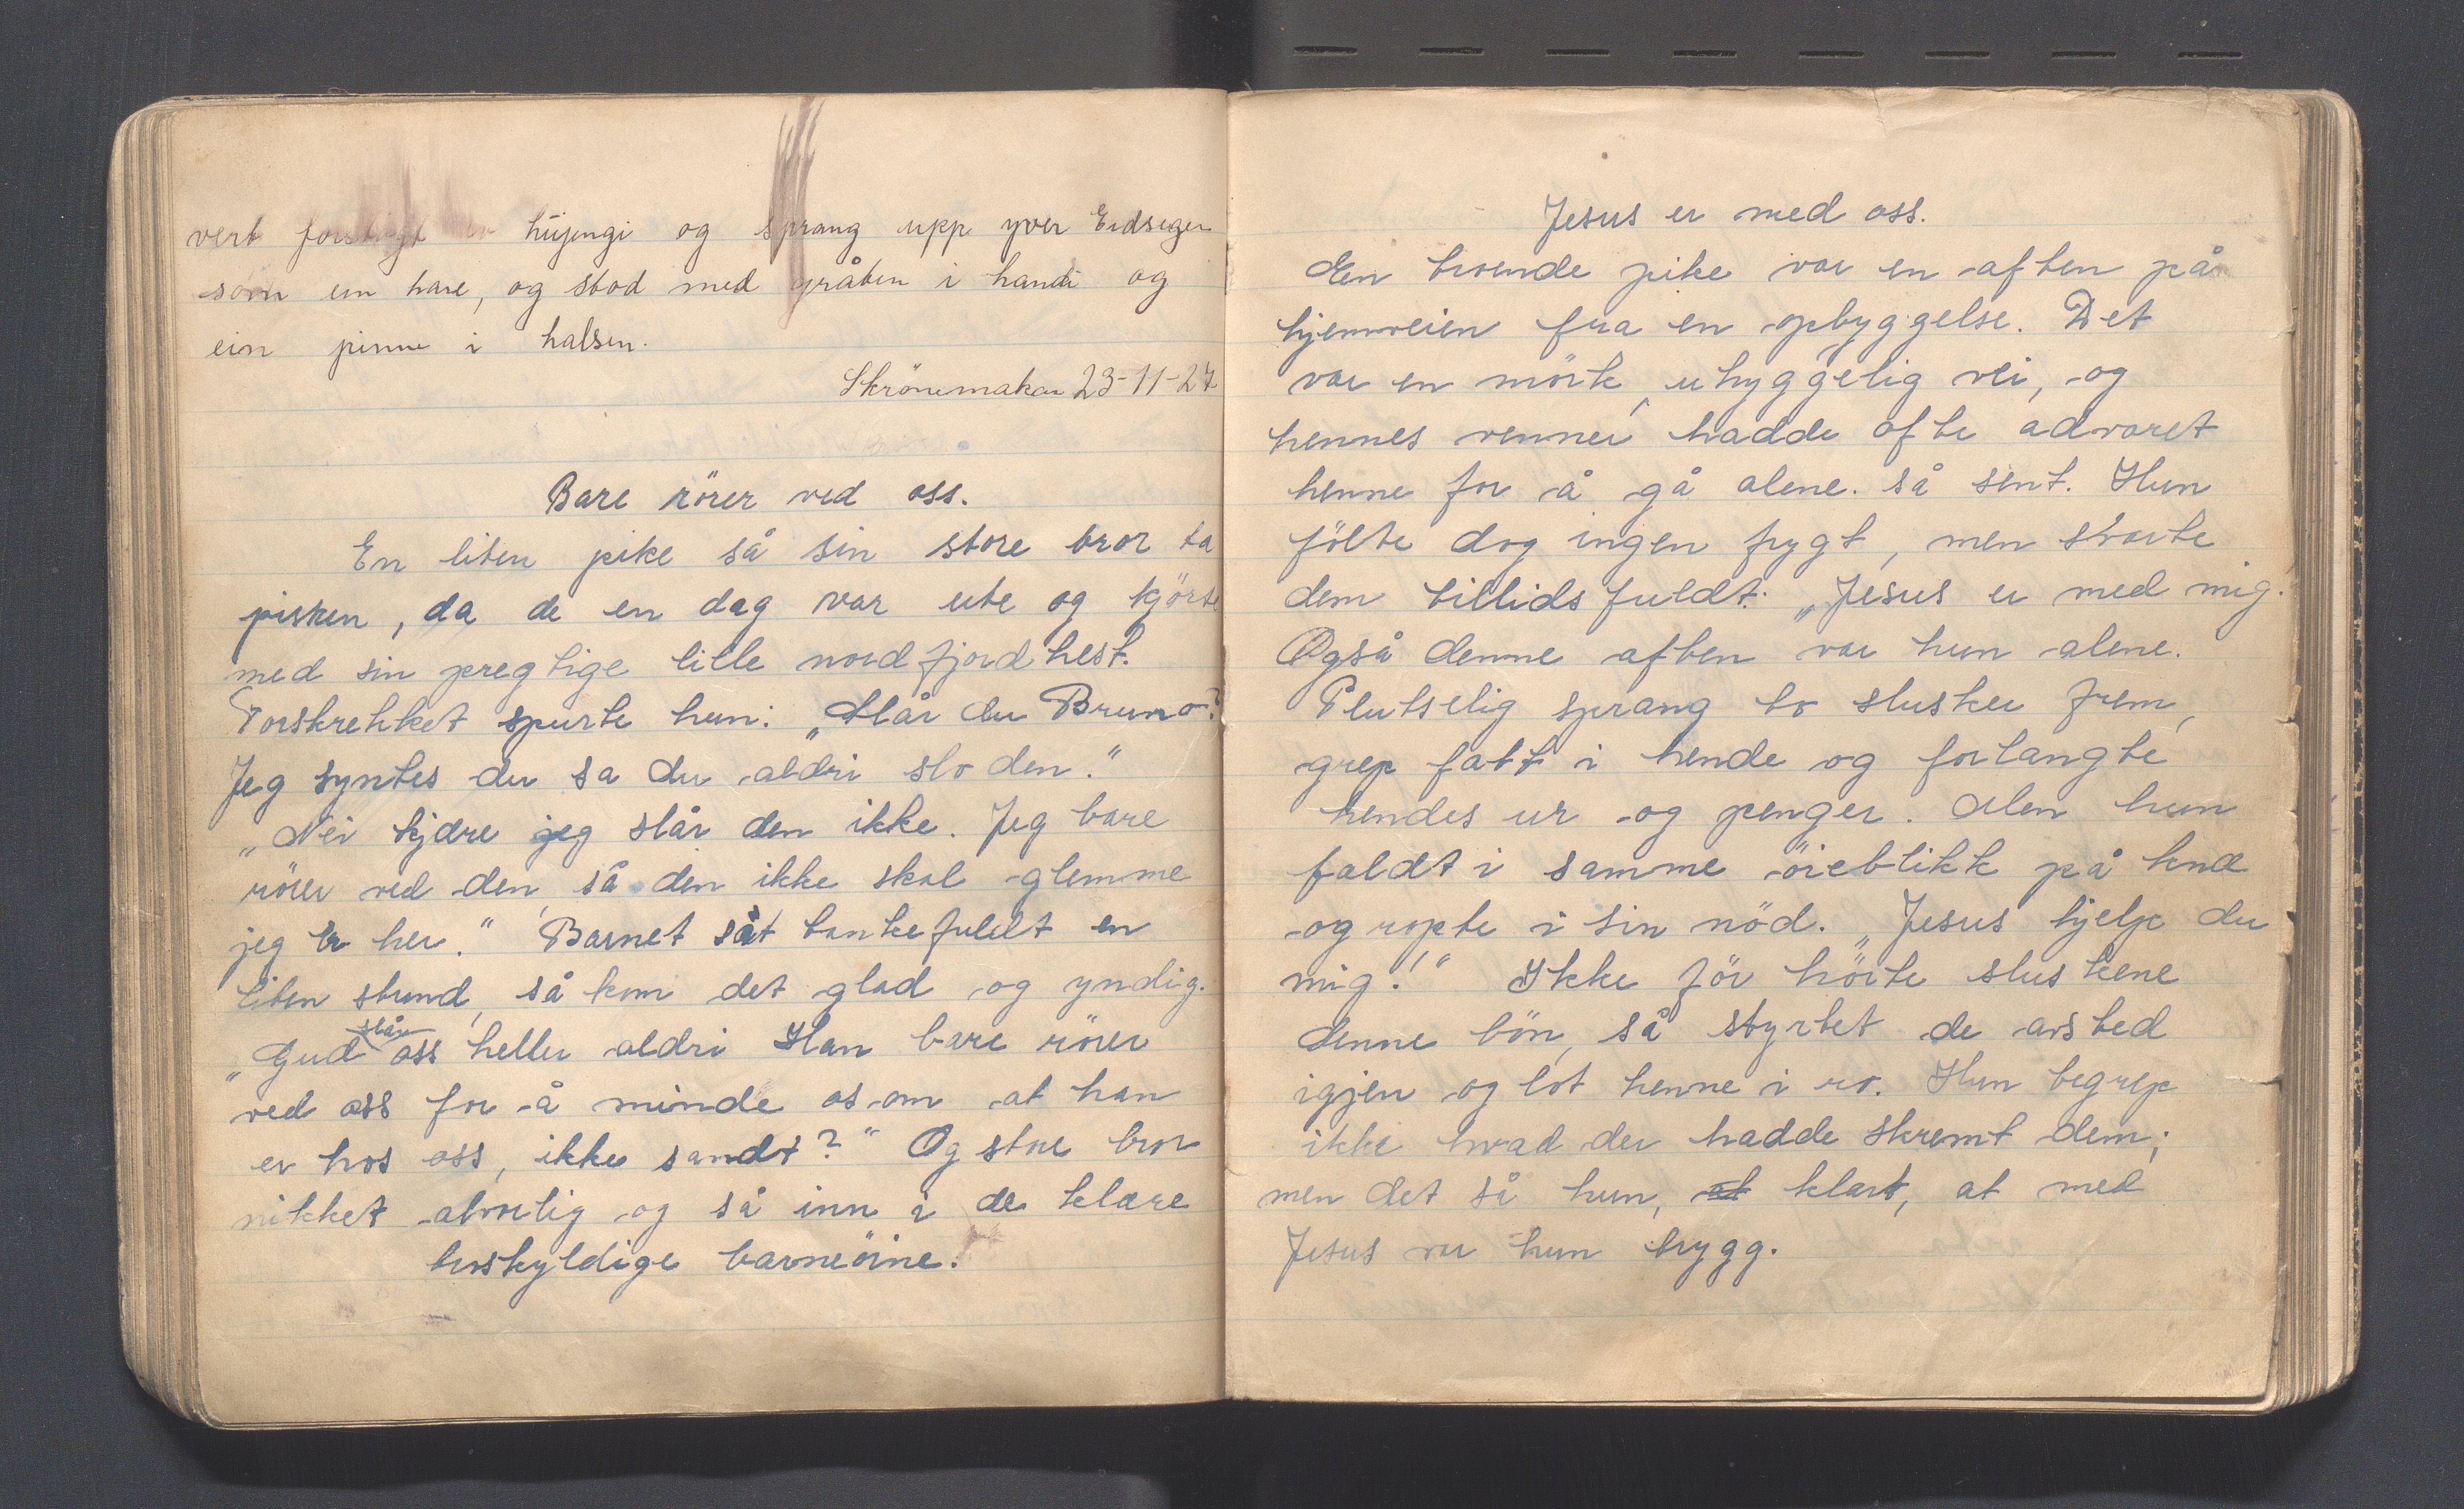 vert og sprang upp yver Eidsegen
som ein hare, og stod med gråten i handi og
ein pinne i halsen.
Skrönemakar 23-11-27
Bare rörer ved oss.
En liten pike så sin store bror ta
pisken, da de en dag var ute og kjörte
med sin pregtige lille nordfjordhest.
Forskrekket spurte hun: „Slår du Bruno?
Jeg syntes du sa du aldri slo den."
„Nei kjære jeg slår den ikke. Jeg bare
rörer ved den, så den ikke skal glemme
jeg er her." Barnet såt tankefuldt en
liten stund, så kom det glad og yndig.
„Gud slår oss heller aldri Han bare rörer
ved oss for å minde os om at han
er hos oss, ikke sandt?" Og store bror
nikket alvorlig og så inn i de klare
troskyldige barneöine.
Jesus er med oss.
En troende pike var en aften på
hjemveien fra en opbyggelse. Det
var en mörk, uhyggelig vei, og
hennes venner hadde ofte advaret
henne for å gå alene. så sent. Hun
fölte dog ingen frygt, men svarte
dem tillidsfuldt: „Jesus er med mig.
Også denne aften var hun alene.
Plutselig sprang to slusker frem,
grep fatt i hende og forlangte
hendes ur og penger. Men hun
faldt i samme öieblikk på knæ
og ropte i sin nöd. „Jesus hjelp du
mig!" Ikke för hörte sluskene
denne bön, så styrtet de avsted
igjen og lot henne i ro. Hun begrep
ikke hvad der hadde skremt dem;
men det så hun, at klart, at med
Jesus var hun trygg.